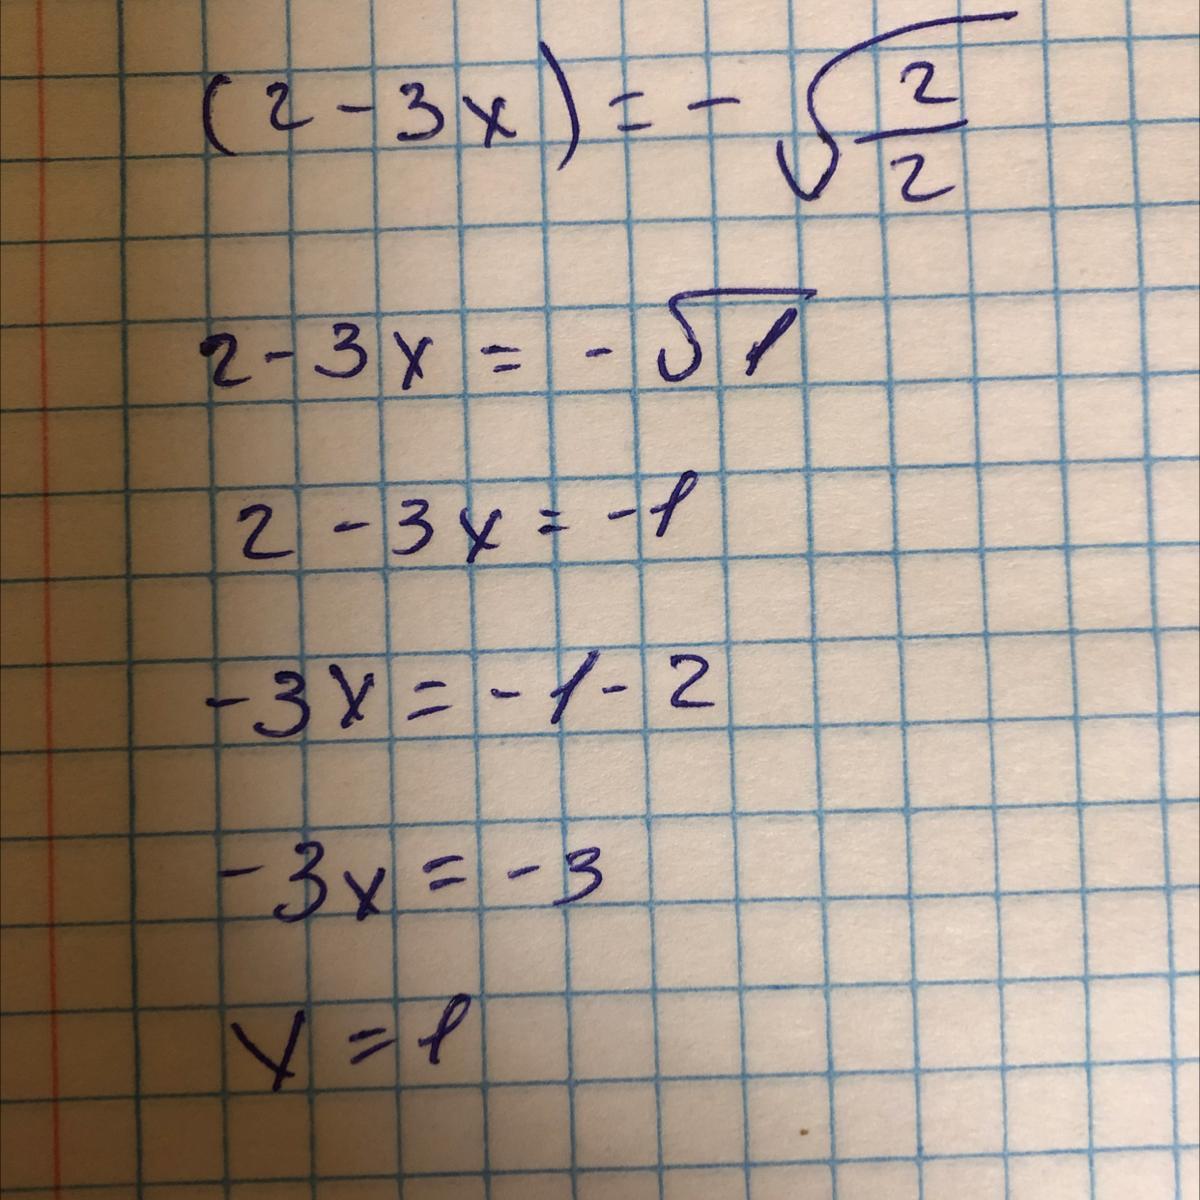 (2 - 3x) = - √(2/2)
2 - 3x = - √1
2 - 3x = -1
-3x = -1 - 2
-3x = -3
x = 1